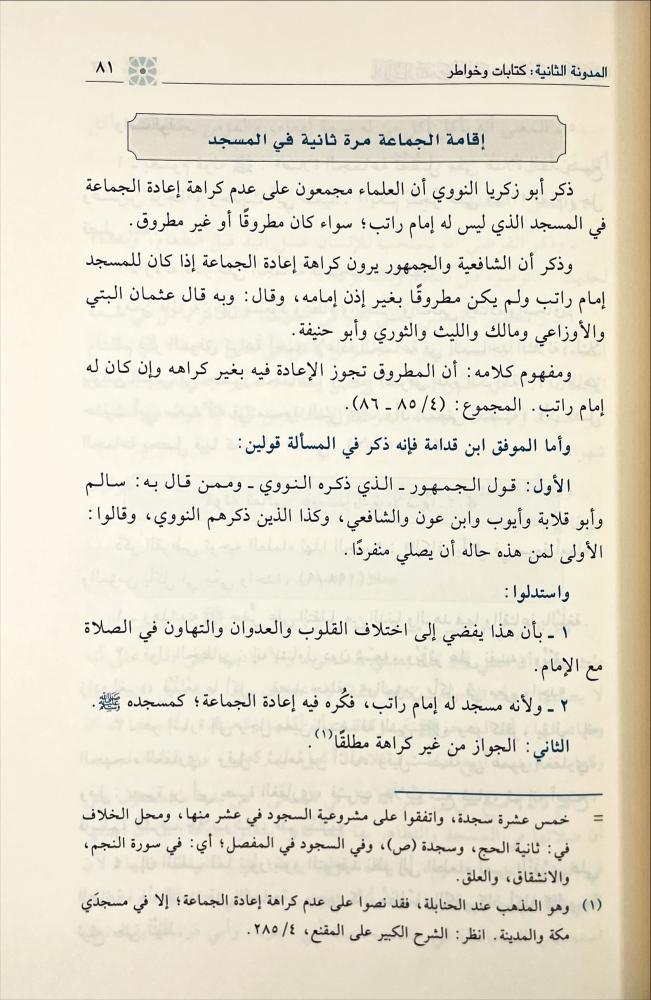 المدونة الثانية: كتابات وخواطر
٨١
إقامة الجماعة مرة ثانية في المسجد
ذكر أبو زكريا النووي أن العلماء مجمعون على عدم كراهة إعادة الجماعة
في المسجد الذي ليس له إمام راتب؛ سواء كان مطروقًا أو غير مطروق.
وذكر أن الشافعية والجمهور يرون كراهة إعادة الجماعة إذا كان للمسجد
إمام راتب ولم يكن مطروقًا بغير إذن إمامه، وقال: وبه قال عثمان البتي
والأوزاعي ومالك والليث والثوري وأبو حنيفة.
ومفهوم كلامه: أن المطروق تجوز الإعادة فيه بغير كراهه وإن كان له
إمام راتب. المجموع: (٤/ ٨٥ ـ ٨٦).
وأما الموفق ابن قدامة فإنه ذكر في المسألة قولين:
الأول: قول الجمهور ـ الذي ذكره النووي ـ وممن قال به: سالم
وأبو قلابة وأيوب وابن عون والشافعي، وكذا الذين ذكرهم النووي، وقالوا:
الأولى لمن هذه حاله أن يصلي منفردًا.
واستدلوا:
١ ـ بأن هذا يفضي إلى اختلاف القلوب والعدوان والتهاون في الصلاة
مع الإمام.
٢ ـ ولأنه مسجد له إمام راتب، فكُره فيه إعادة الجماعة؛ كمسجده ﷺ.
الثاني: الجواز من غير كراهة مطلقًا(١).
= خمس عشرة سجدة، واتفقوا على مشروعية السجود في عشر منها، ومحل الخلاف
في: ثانية الحج، وسجدة (ص)، وفي السجود في المفصل؛ أي: في سورة النجم،
والانشقاق، والعلق.
(١) وهو المذهب عند الحنابلة، فقد نصوا على عدم كراهة إعادة الجماعة؛ إلا في مسجدَي
مكة والمدينة. انظر: الشرح الكبير على المقنع، ٢٨٥/٤.